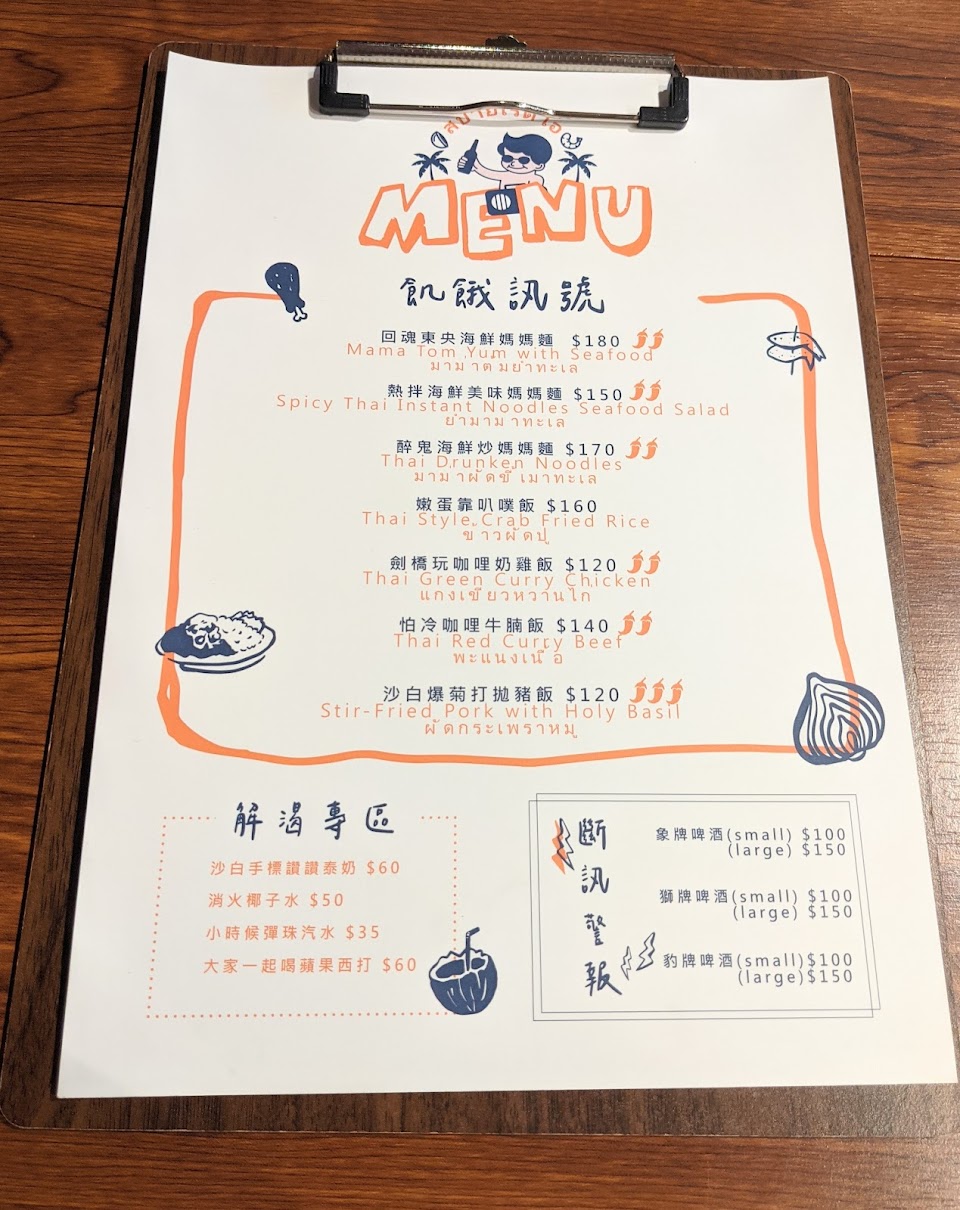 MENU
飢餓訊號
回魂東央海鮮媽媽麵 $180
Mama Tom Yum with Seafood
มาม่าต้มยำทะเล
熱拌海鮮美味媽媽麵 $150
Spicy Thai Instant Noodles Seafood Salad
ยำมาม่าทะเล
醉鬼海鮮炒媽媽麵 $170
Thai Drunken Noodles
มาม่าผัดขี้เมาทะเล
嫩蛋靠叭噗飯 $160
Thai Style Crab Fried Rice
ข้าวผัดปู
劍橋玩咖哩奶雞飯 $120
Thai Green Curry Chicken
แกงเขียวหวานไก่
怕冷咖哩牛腩飯 $140
Thai Red Curry Beef
พะแนงเนื้อ
沙白爆菊打拋豬飯 $120
Stir-Fried Pork with Holy Basil
ผัดกระเพราหมู
解渴專區
沙白手標讚讚泰奶 $60
消火椰子水 $50
小時候彈珠汽水 $35
大家一起喝蘋果西打 $60
斷訊警報
象牌啤酒(small) $100
(large) $150
獅牌啤酒(small) $100
(large) $150
豹牌啤酒(small)$100
(large)$150